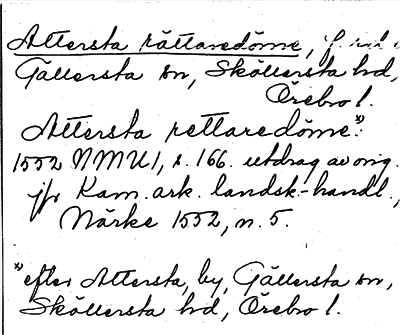 Attersta rättaredöme, f.
Gällersta sn, Sköllersta hd,
Örebro l.
Attersta rettaredöme*)
1552 NMU1, s. 166. utdrag av orig.
jfr Kam. ark. landsk-handl.,
Närke 1552, n. 5.
*) efter Attersta, by, Gällersta sn,
Sköllersta hd, Örebro l.